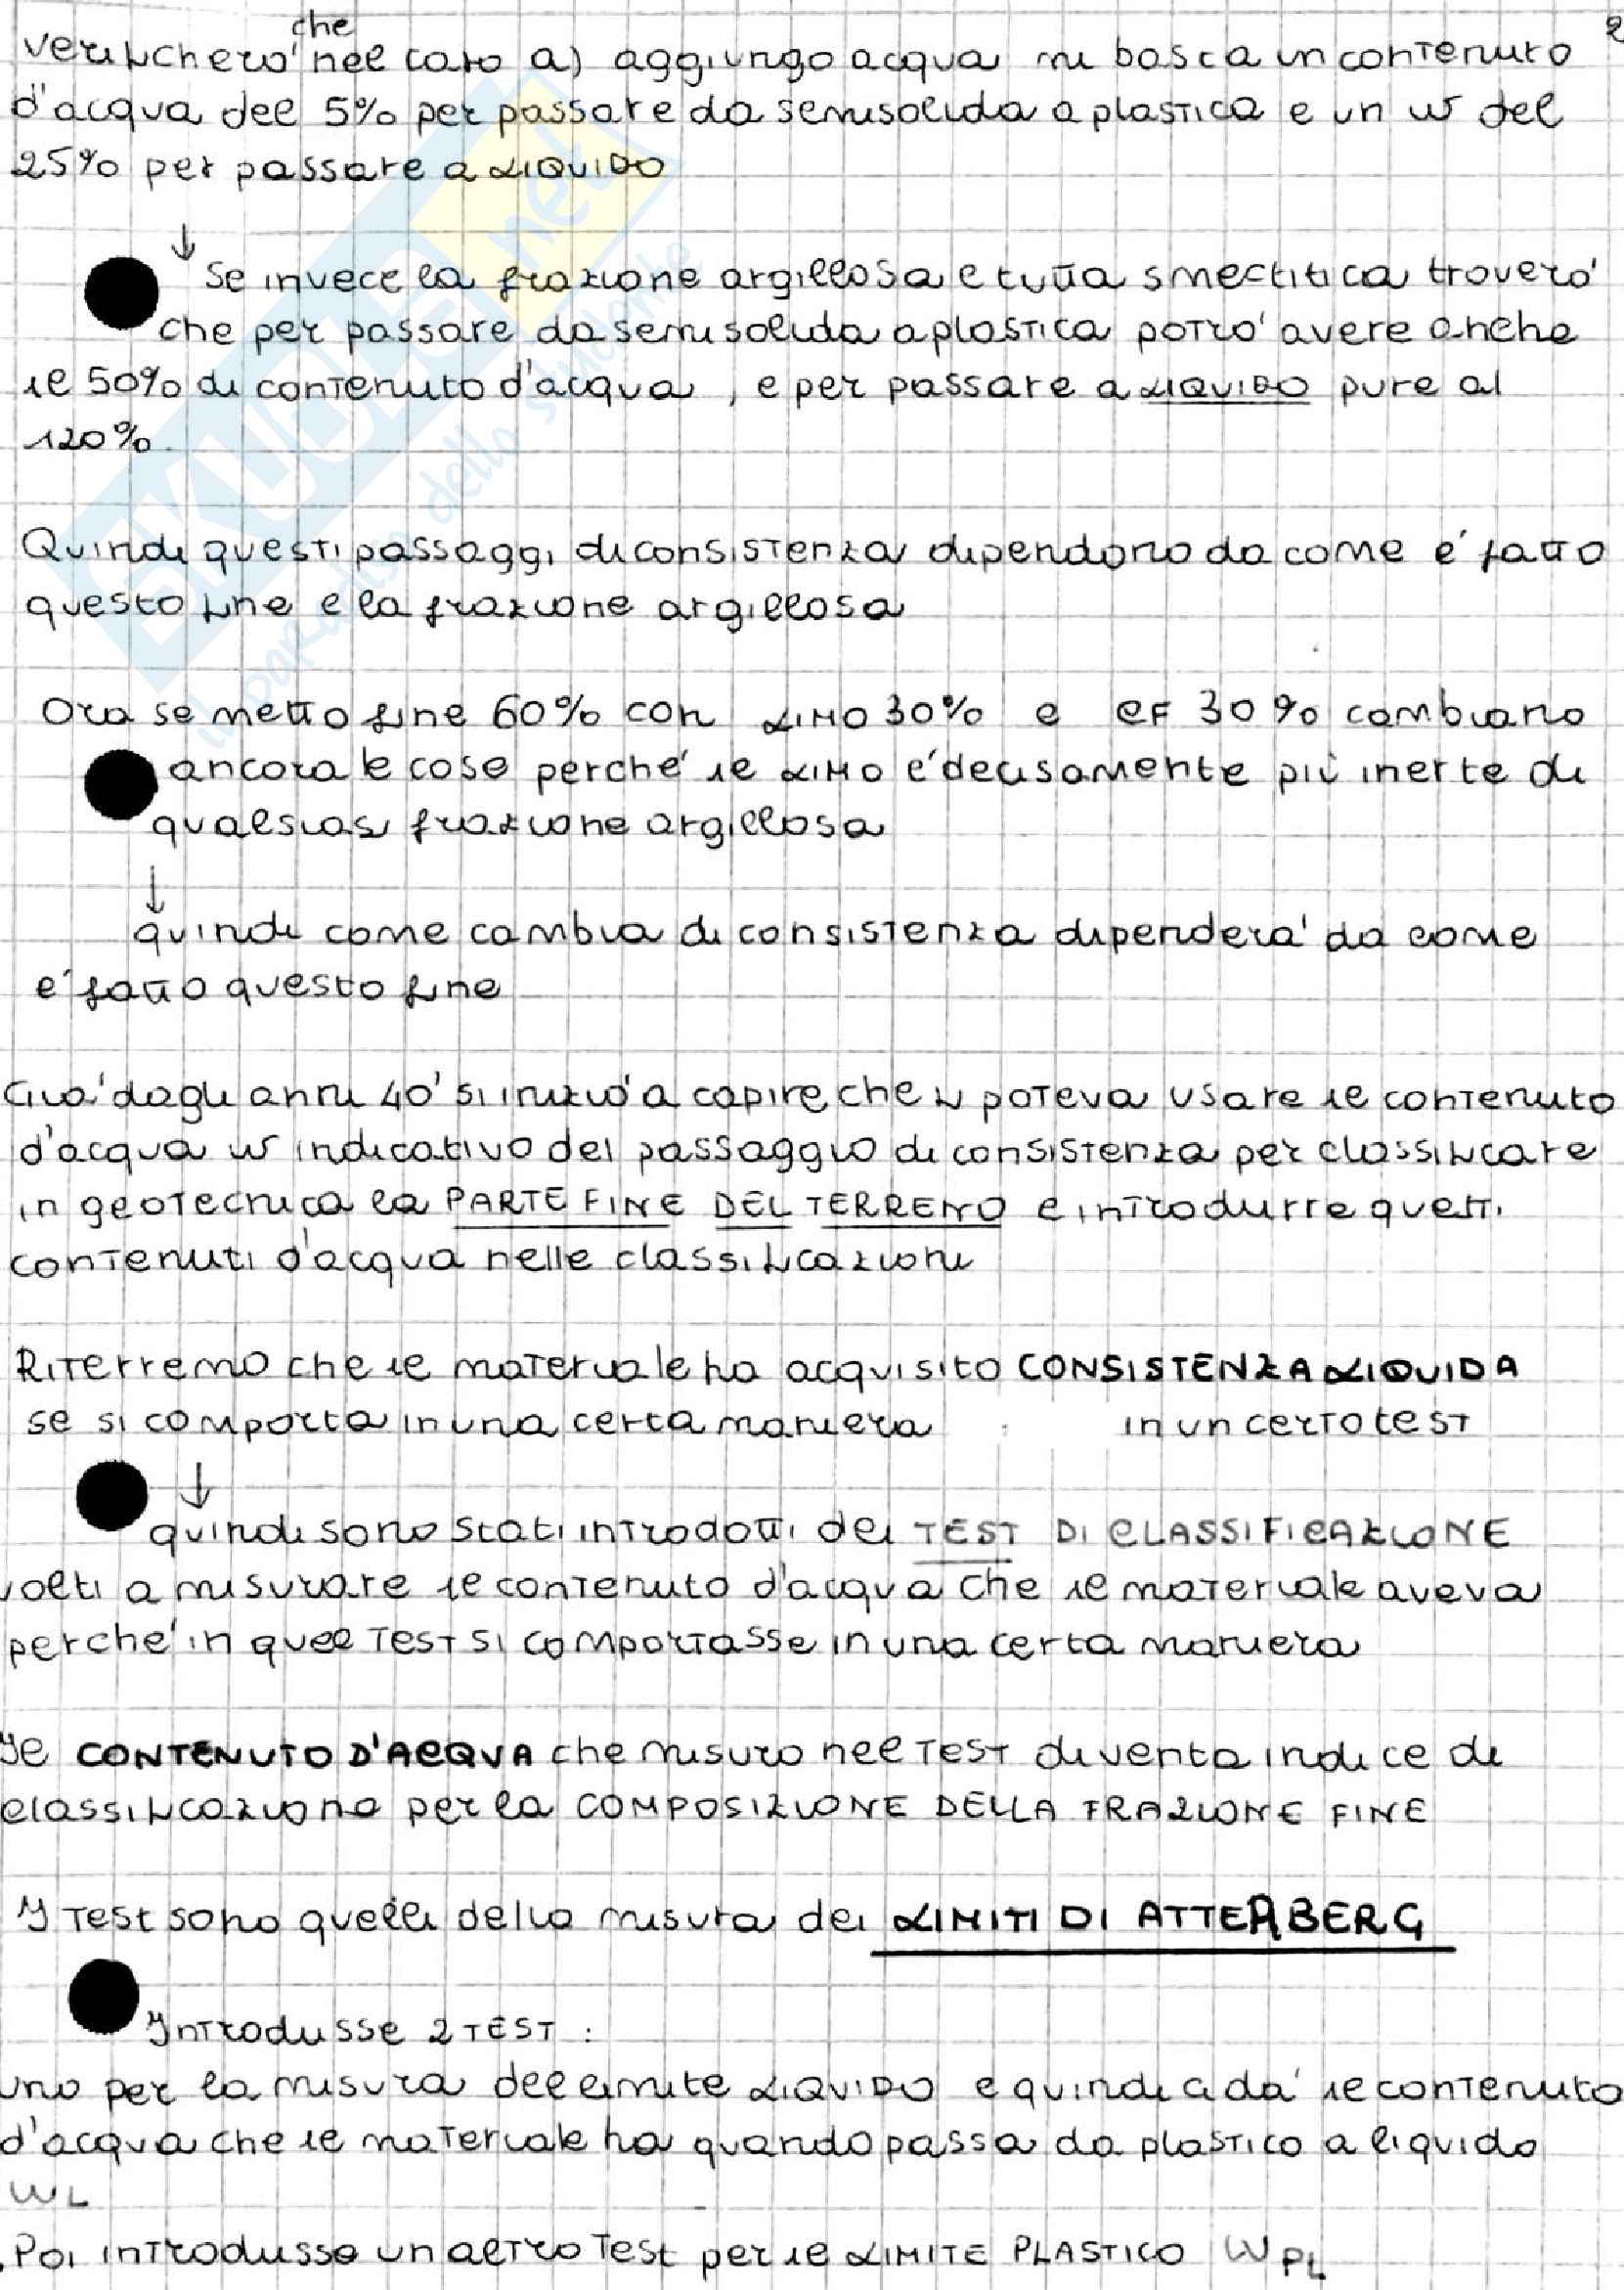 2
che
verificherò nel caso a) aggiungo acqua mi basta un contenuto
d'acqua del 5% per passare da semisolida a plastica e un w del
25% per passare a LIQUIDO
↓
Se invece la frazione argillosa è tutta smectitica troverò
che per passare da semisolida a plastica potrò avere anche
il 50% di contenuto d'acqua, e per passare a LIQUIDO pure al
120%.
Quindi questi passaggi di consistenza dipendono da come è fatto
questo fine e la frazione argillosa
Ora se metto fine 60% con LIMO 30% e CF 30% cambiano
ancora le cose perché il LIMO è decisamente più inerte di
qualsiasi frazione argillosa
↓
quindi come cambia di consistenza dipenderà da come
è fatto questo fine
Già dagli anni 40' si iniziò a capire che si poteva usare il contenuto
d'acqua w indicativo del passaggio di consistenza per classificare
in geotecnica la PARTE FINE DEL TERRENO e introdurre questi
contenuti d'acqua nelle classificazioni
Riterremo che il materiale ha acquisito CONSISTENZA LIQUIDA
se si comporta in una certa maniera in un certo test
↓
quindi sono stati introdotti dei TEST DI CLASSIFICAZIONE
volti a misurare il contenuto d'acqua che il materiale aveva
perché in quel test si comportasse in una certa maniera
Il CONTENUTO D'ACQUA che misuro nel test diventa indice di
classificazione per la COMPOSIZIONE DELLA FRAZIONE FINE
I test sono quelli della misura dei LIMITI DI ATTERBERG
Introdusse 2 TEST :
uno per la misura del limite LIQUIDO e quindi ci dà il contenuto
d'acqua che il materiale ha quando passa da plastico a liquido
WL
. Poi introdusse un altro Test per il LIMITE PLASTICO WPL
SKUOLA.net
il paradiso dello studente